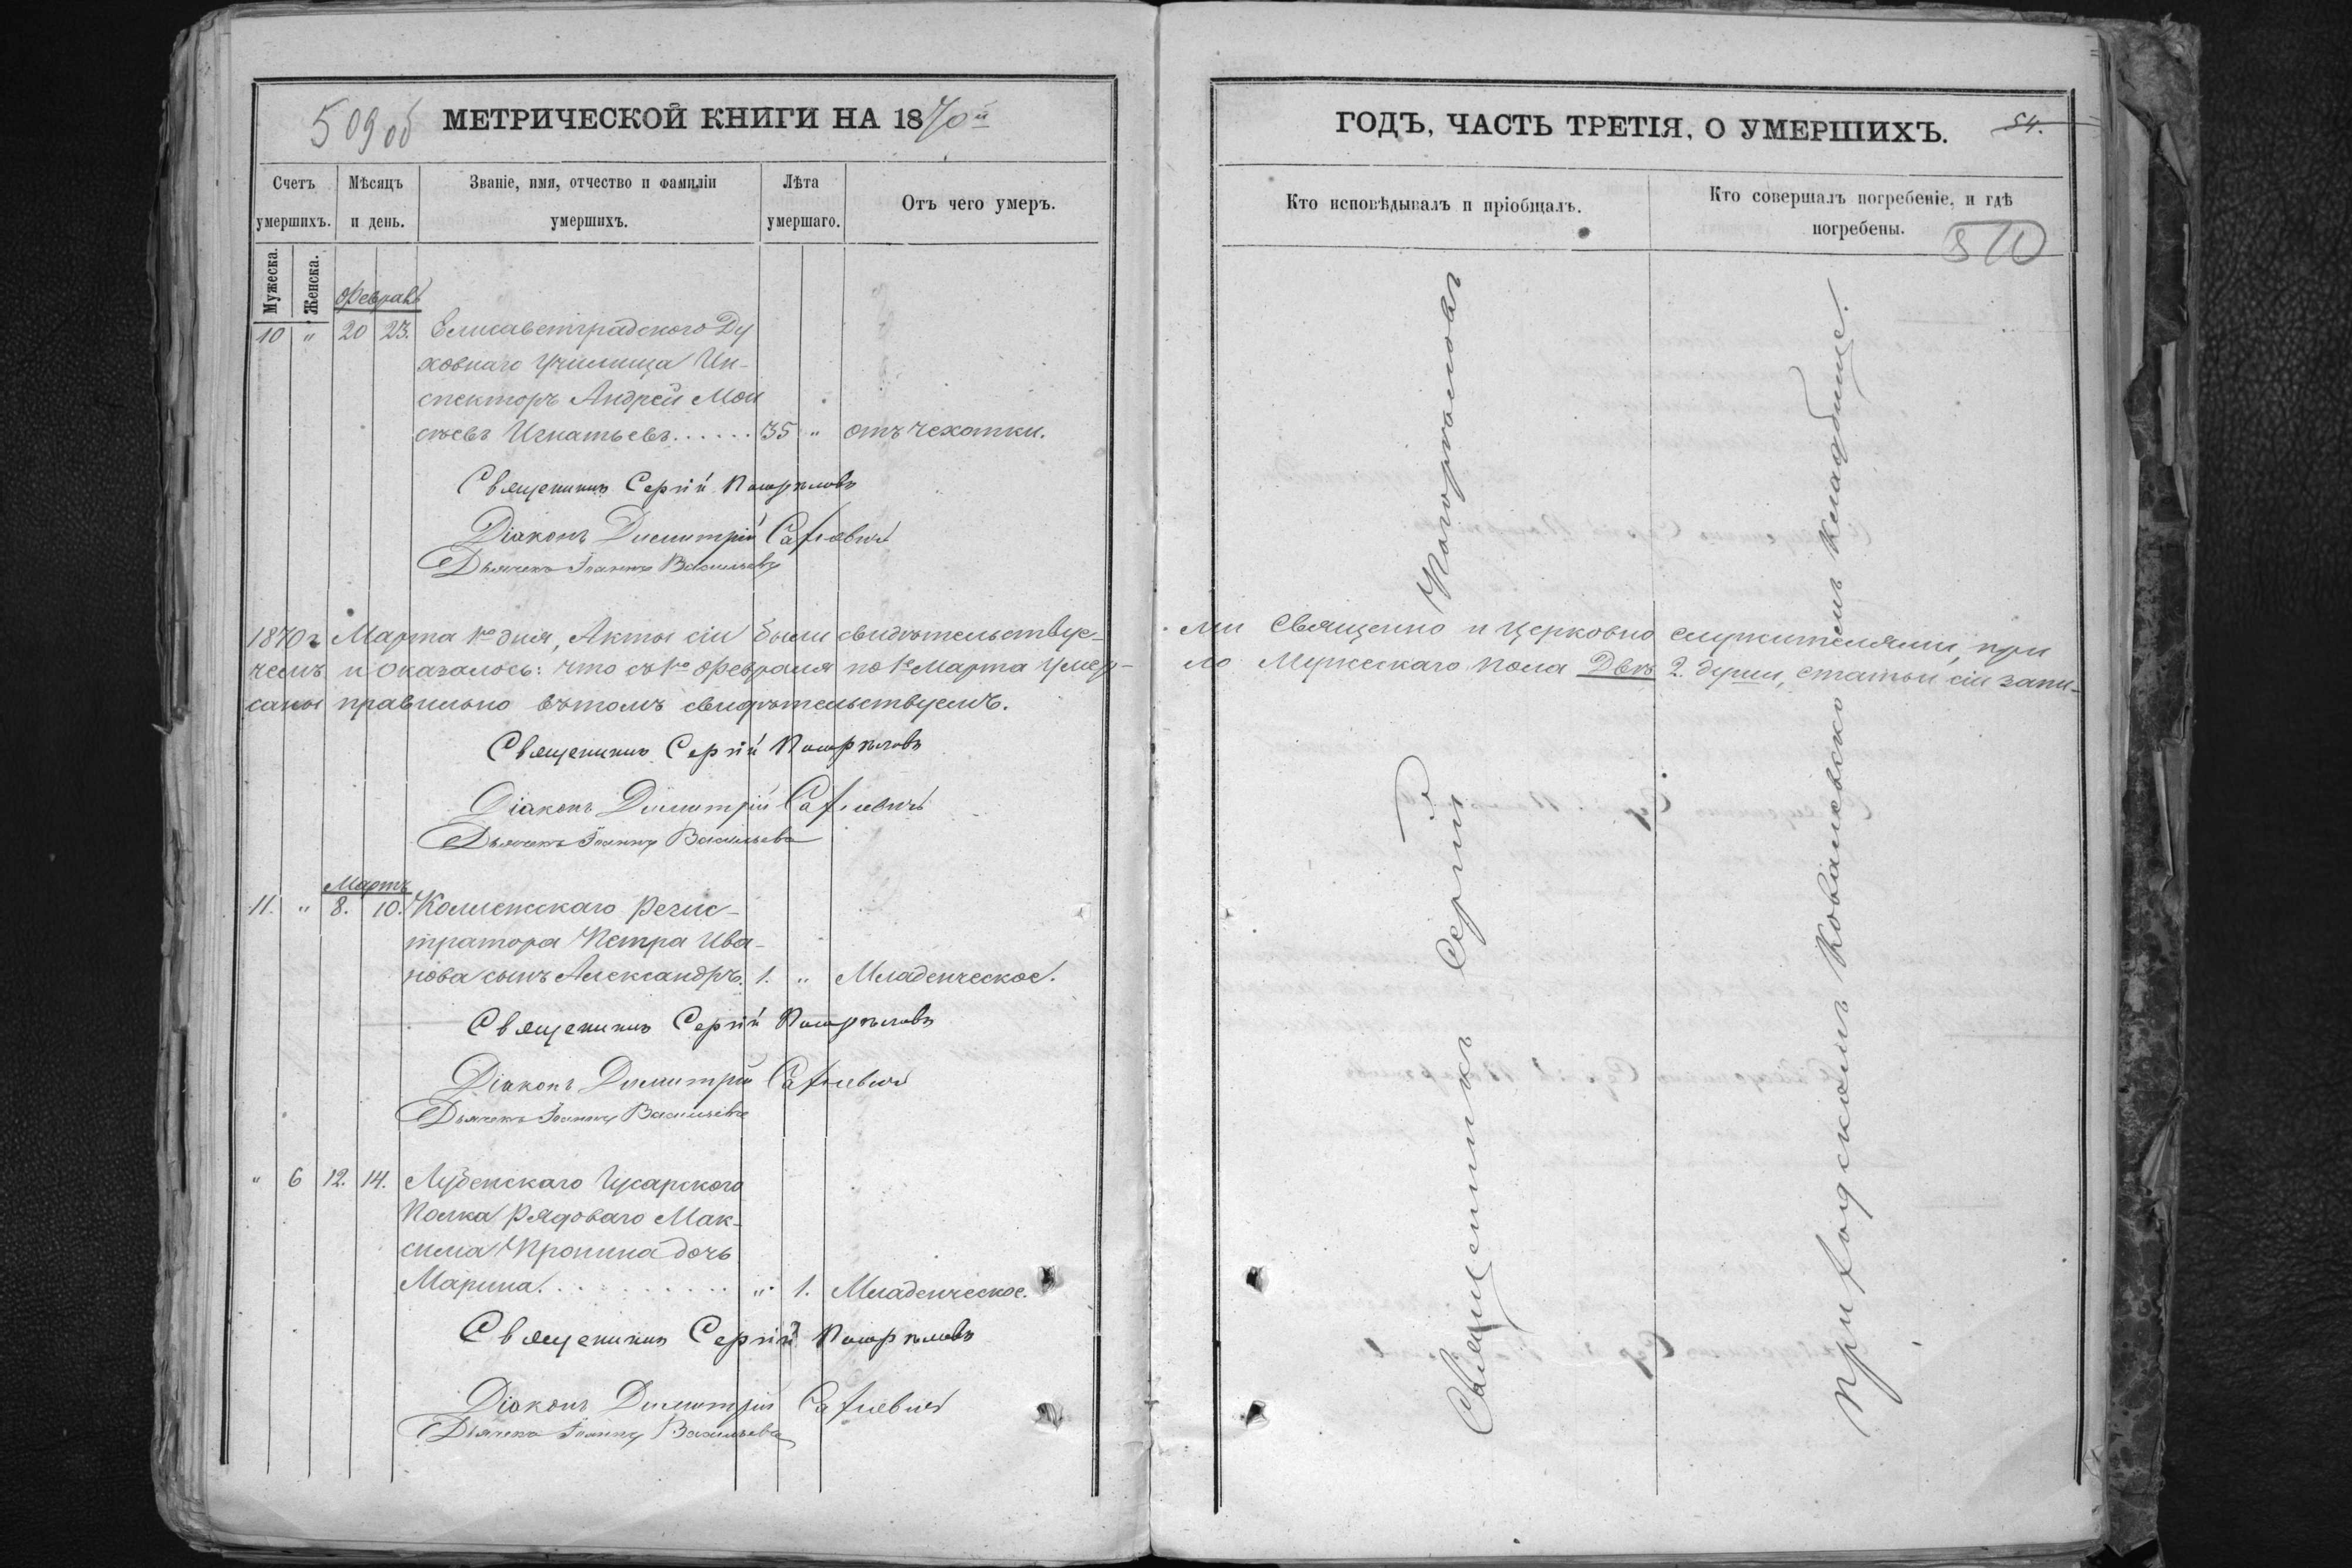 509об МЕТРИЧЕСКОЙ КНИГИ НА 1870й
Счетъ умершихъ.
Мѣсяцъ и день.
Званіе, имя, отчество и фамиліи умершихъ.
Лѣта умершаго.
Отъ чего умеръ.
Мужеска.
Женска.
Февраль
10 " 20 23. Елисаветградского Ду
ховнаго Училища Ин-
спекторъ Андрей Мои
сѣевъ Игнатьевъ...... 35 " отъ чехотки.
Священникъ Сергій
Діаконъ Димитрій
Дьячекъ Іоаннъ Васильевъ
1870 г Марта 1го дня, Акты сіи были свидѣтельствуе-
чемъ и оказалось: что съ 1го Февраля по 1е Марта умер-
саны правильно въ томъ свидѣтельствуемъ.
Священникъ Сергій
Діаконъ Димитрій
Дьячекъ Іоаннъ Васильевъ
Мартъ
11. " 8. 10. Коллежскаго Регис-
тратора Петра Ива-
нова сынъ Александръ. 1. " Младенческое.
Священникъ Сергій
Діаконъ Димитрій
Дьячекъ Іоаннъ Васильевъ
" 6 12. 14. Лубенскаго Гусарского
Полка Рядоваго Мак-
сима Пронина дочь
Марина.......... " 1. Младенческое.
Священникъ Сергій
Діаконъ Димитрій
Дьячекъ Іоаннъ Васильевъ
ГОДЪ, ЧАСТЬ ТРЕТІЯ, О УМЕРШИХЪ. 54.
Кто исповѣдывалъ и пріобщалъ.
Кто совершалъ погребеніе, и гдѣ
погребены.
510
ми Священно и церковно служителями, при
ло Мужескаго пола Двѣ 2. души, статьи сіи запи-
Священникъ Сергій
Приходскомъ Ковалевскомъ кладбище.